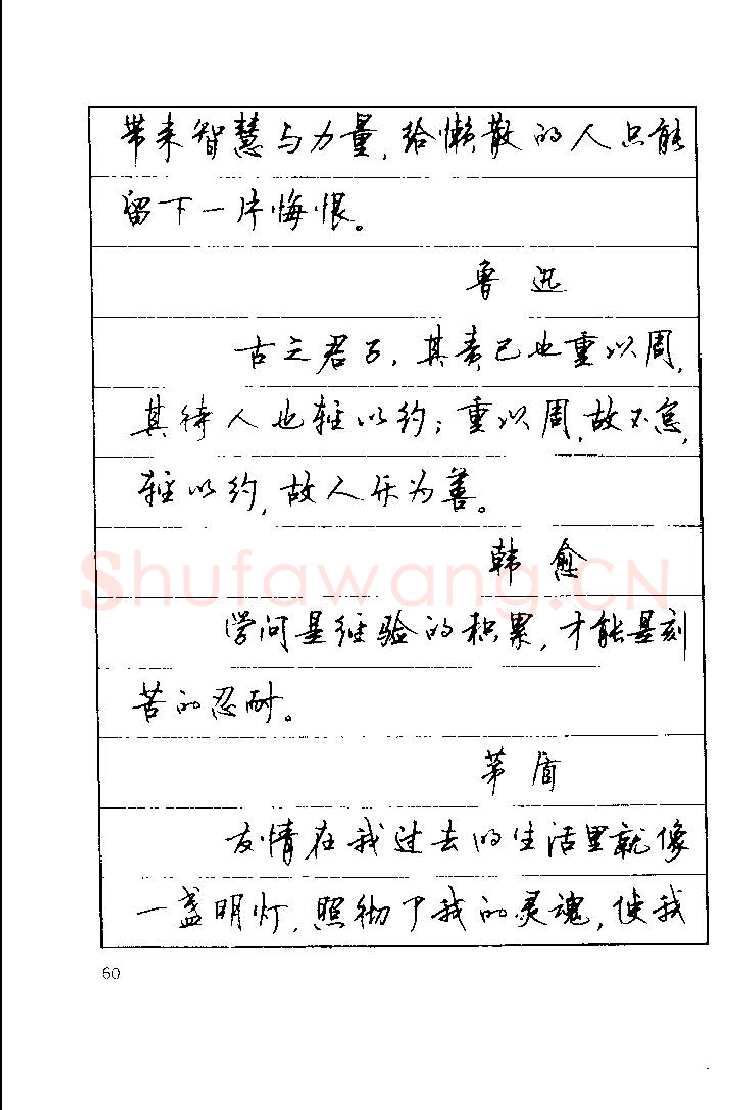 带来智慧与力量，给懒散的人只能
留下一片悔恨。
鲁迅
古之君子，其责已也重以周，
其待人也轻以约；重以周，故不怠，
轻以约，故人乐为善。
韩愈
Shufawang.CN
学问是经验的积累，才能是刻
苦的忍耐。
茅盾
友情在我过去的生活里就像
一盏明灯，照彻了我的灵魂，使我
60